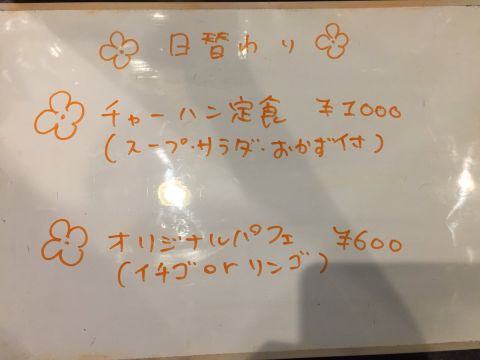 日替わり
チャーハン定食 ¥1000
(スープ・サラダ・おかず付)
オリジナルパフェ ¥600
(イチゴorリンゴ)